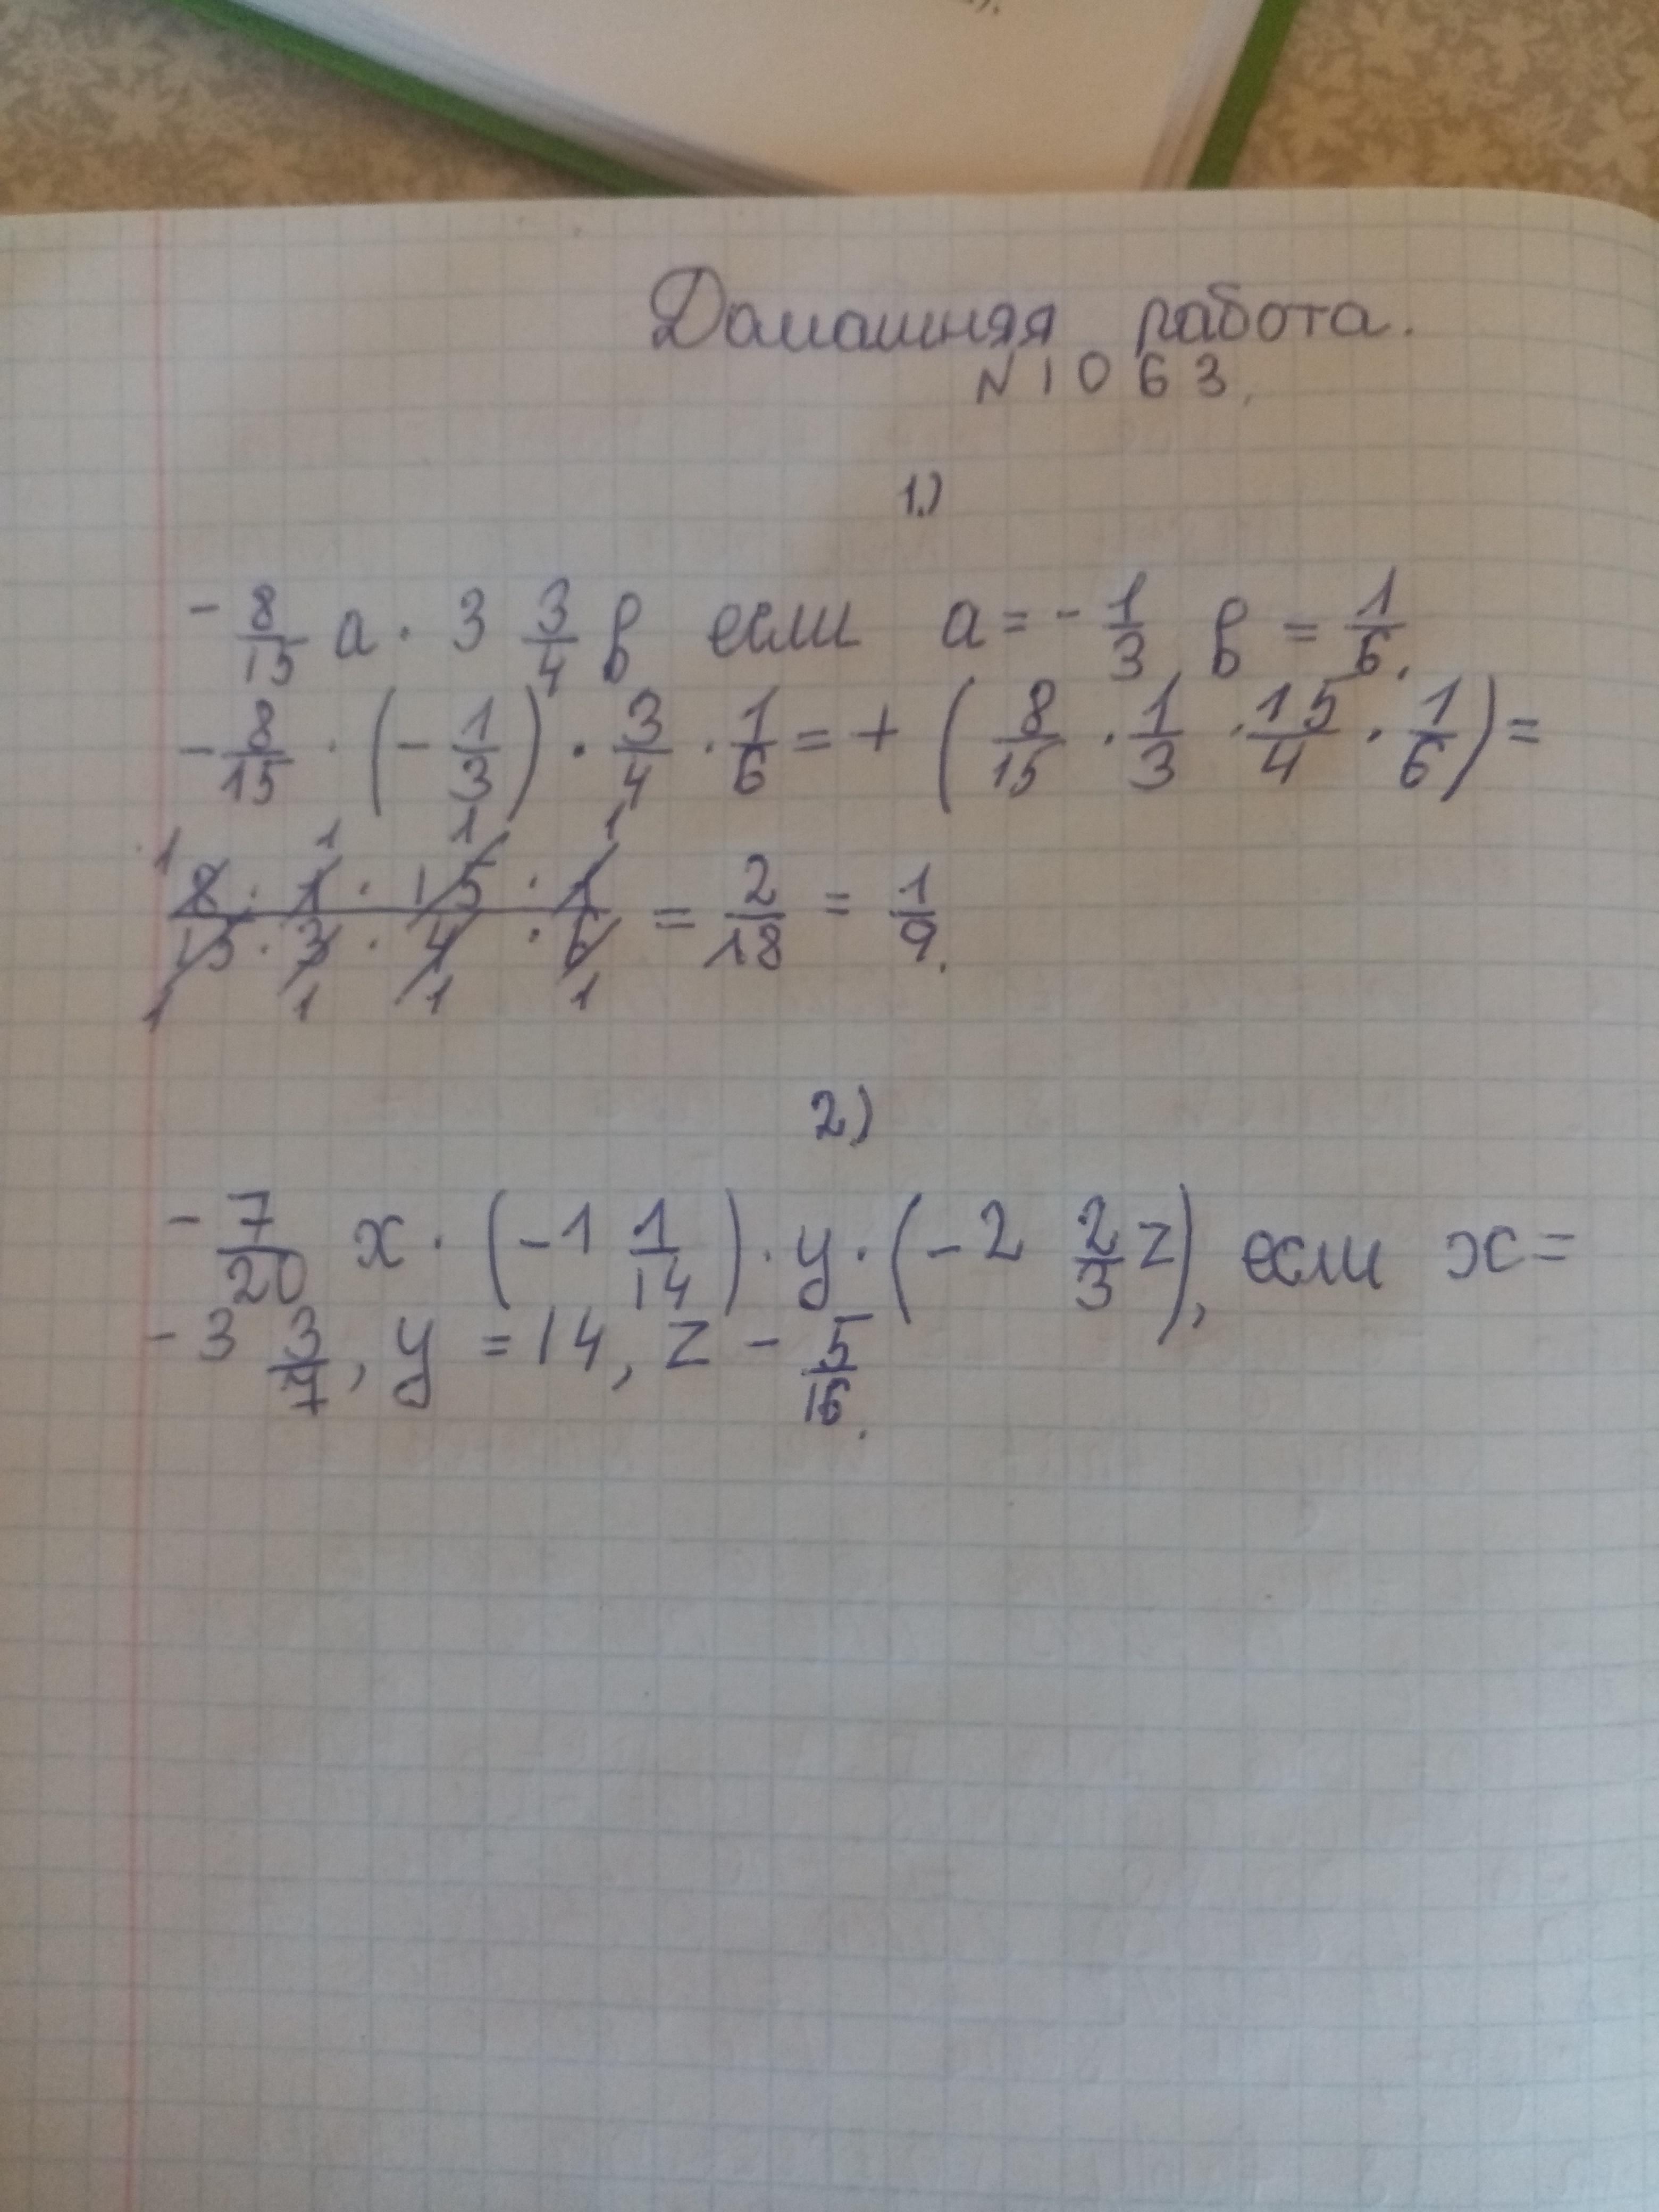 Домашняя работа.
N1063.
1.)
- 8/15 a · 3 3/4 b если a = - 1/3, b = 1/6.
- 8/15 · (- 1/3) · 3/4 · 1/6 = + (8/15 · 1/3 · 15/4 · 1/6) =
1 1 1 1
8 · 1 · 15 · 1 / 15 · 3 · 4 · 6 = 2/18 = 1/9.
1 1 1 1
2)
- 7/20 x · (-1 1/14) · y · (-2 2/3 z), если x =
- 3 3/7, y = 14, z - 5/16.